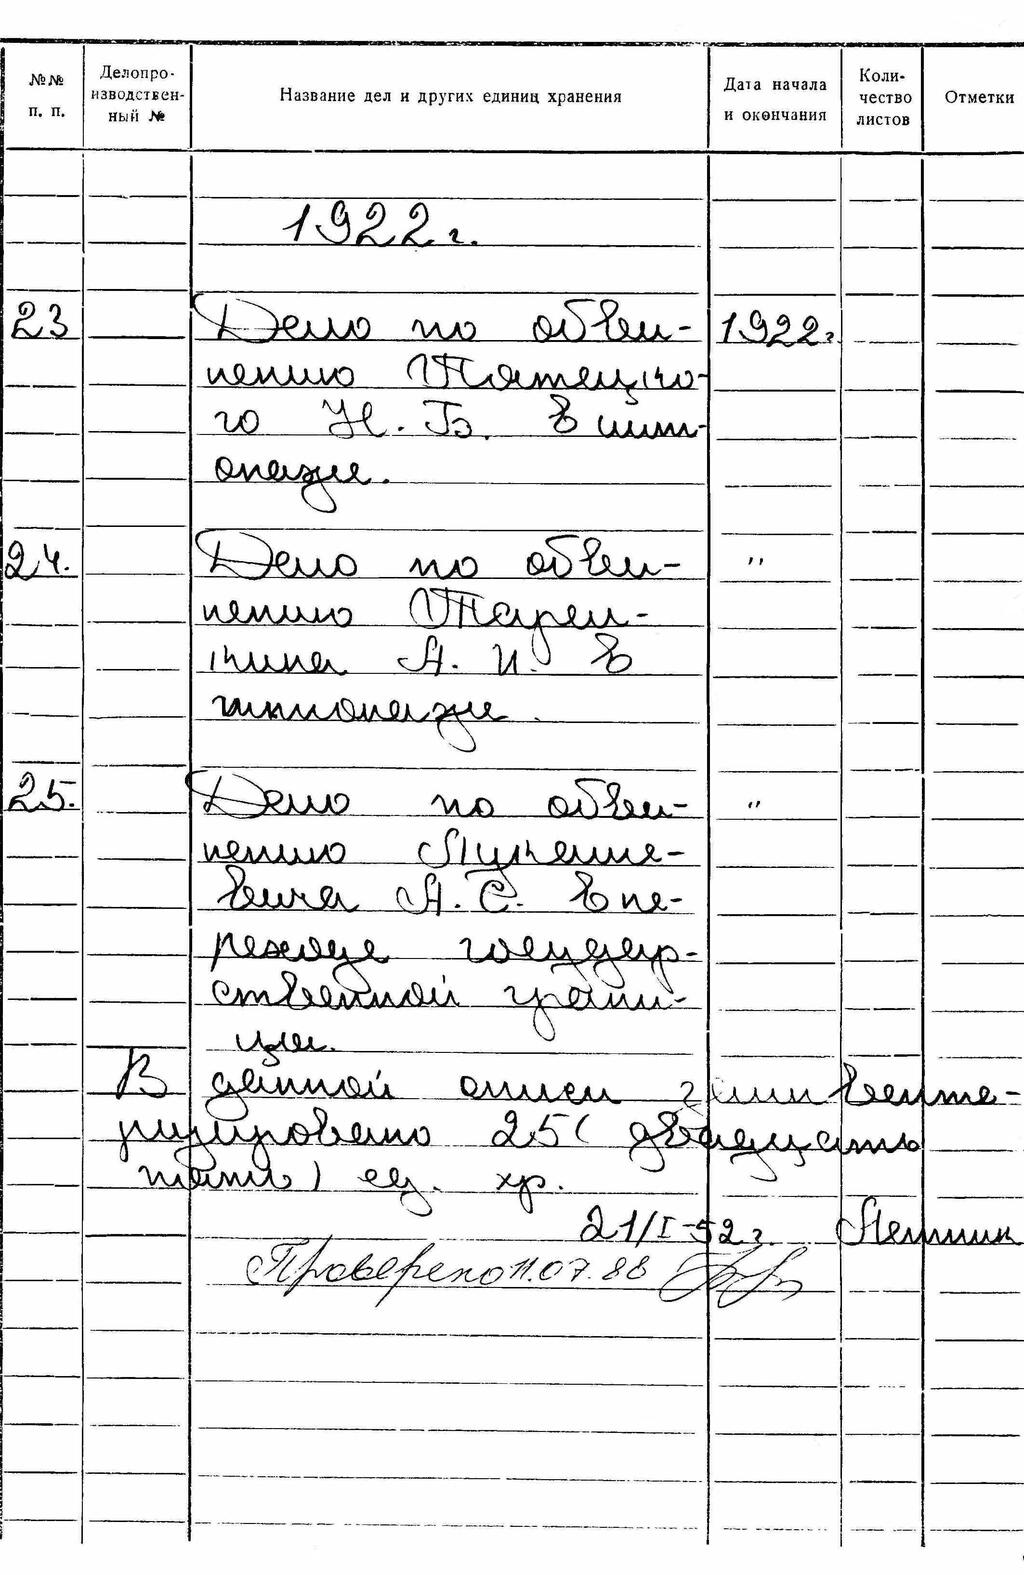 №№ п. п.
Делопро-
изводствен-
ный №
Название дел и других единиц хранения
Дата начала
и окончания
Коли-
чество
листов
Отметки
1922 г.
23 Дело по обви- 1922 г.
нению
го Н. Б. в шпи-
онаже.
24. Дело по обви- "
нению Тарен-
кина А. И. в
шпионаже.
25. Дело по обви- "
нению Лукаше-
вича А. С. в пе-
реходе государ-
ственной грани-
цы.
В данной описи заинвента-
ризировано 25 ( двадцать
пять ) ед. хр.
21/I-52 г.
Проверено 11.07.88